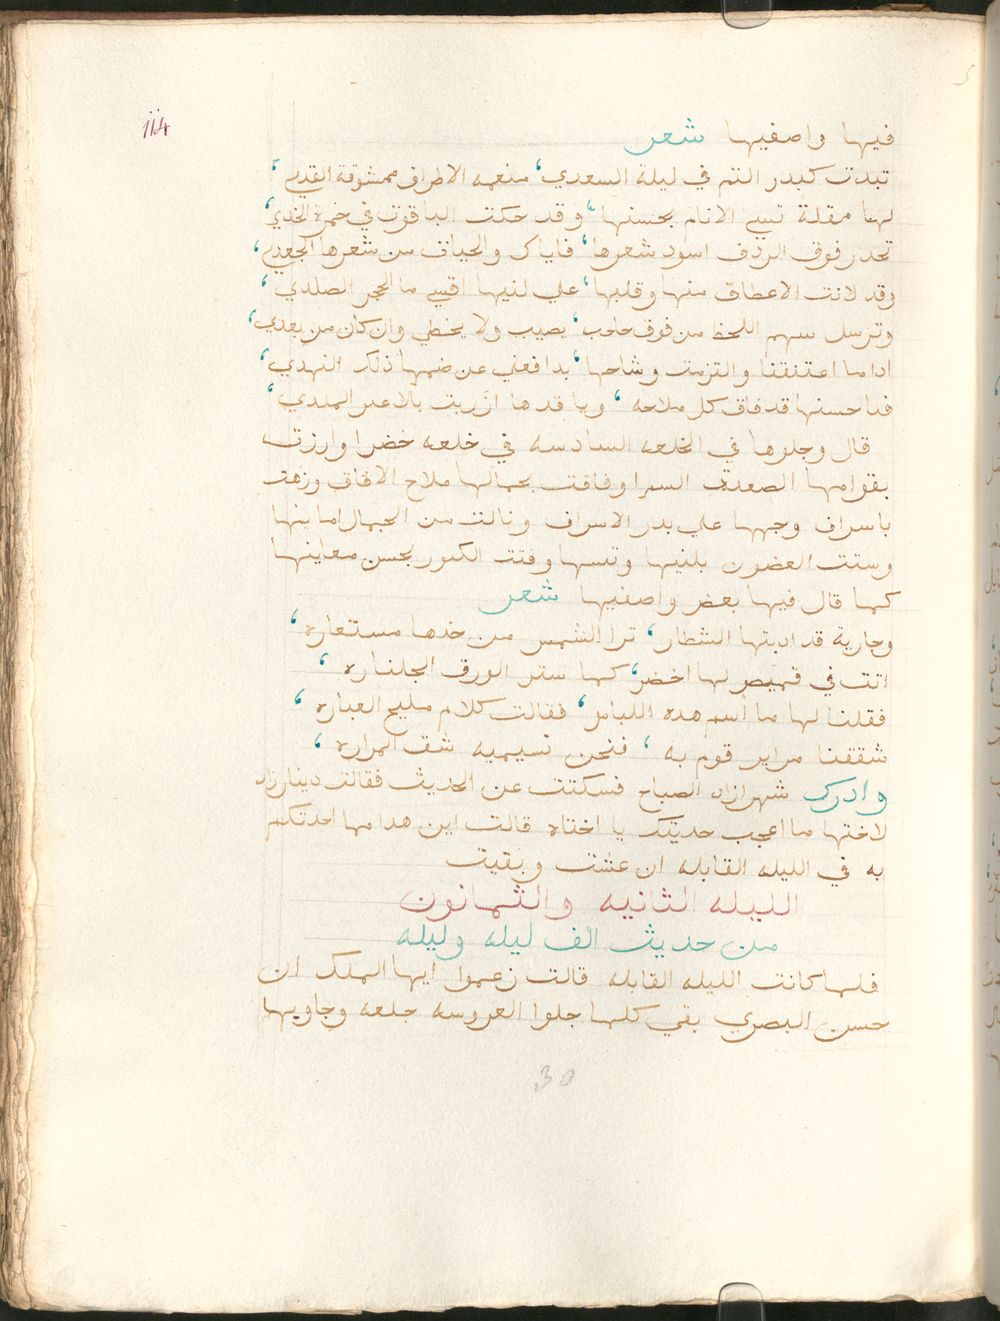 114
فيها واصفيها شعر
تبدت كبدر التم في ليلة السعدي، منعمه الاطراف ممشوقة القدي،
لها مقلة تسبي الانام بحسنها، وقد حكت الياقوت في حمرة الخدي،
تحدر فوق الردف اسود شعرها، فاياك والحيات من شعرها الجعدي،
وقد لانت الاعطاف منها وقلبها، علي لنيها اقسي ما الحجر الصلدي،
وترسل سهم اللحظ من فوق حاجب، يصيب ولا يخطي وان كان من بعدي،
ادا ما اعتنقنا والتزمت وشاحها، يدافعني عن ضمها ذلك النهدي،
فيا حسنها قد فاق كل ملاحه، ويا قدها ازريت بالاغصن الملدي،
قال وجلوها في الخلعه السادسه في خلعه خضرا وارزت
بقوامها الصعدة السمرا وفاقت بجمالها ملاح الافاق وزهت
باسراف وجهها علي بدر الاسراف ونالت من الجمال امانيها
وستت الغضون بلنيها وتسها وفتت الكبور بحسن معاينها
كما قال فيها بعض واصفيها شعر
وجارية قد ادبتها الشطار، ترا الشمس من خدها مستعاره،
اتت في قميص لها اخضر، كما ستر الورق الجلناره،
فقلنا لها ما اسم هده اللباس، فقالت كلام مليح العباره،
شققنا مراير قوم به، فنحن نسيميه شق المراره،
وادرك شهرازاد الصباح فسكتت عن الحديث فقالت دينارزاد
لاختها ما اعجب حديثك يا اختاه قالت اين هدا مما احدتكم
به في الليله القابله ان عشت وبقيت
الليله الثانيه والثمانون
من حديث الف ليله وليله
فلما كانت الليله القابله قالت زعموا ايها الملك ان
حسن البصري بقي كلما جلوا العروسه خلعه وجاوبها
30